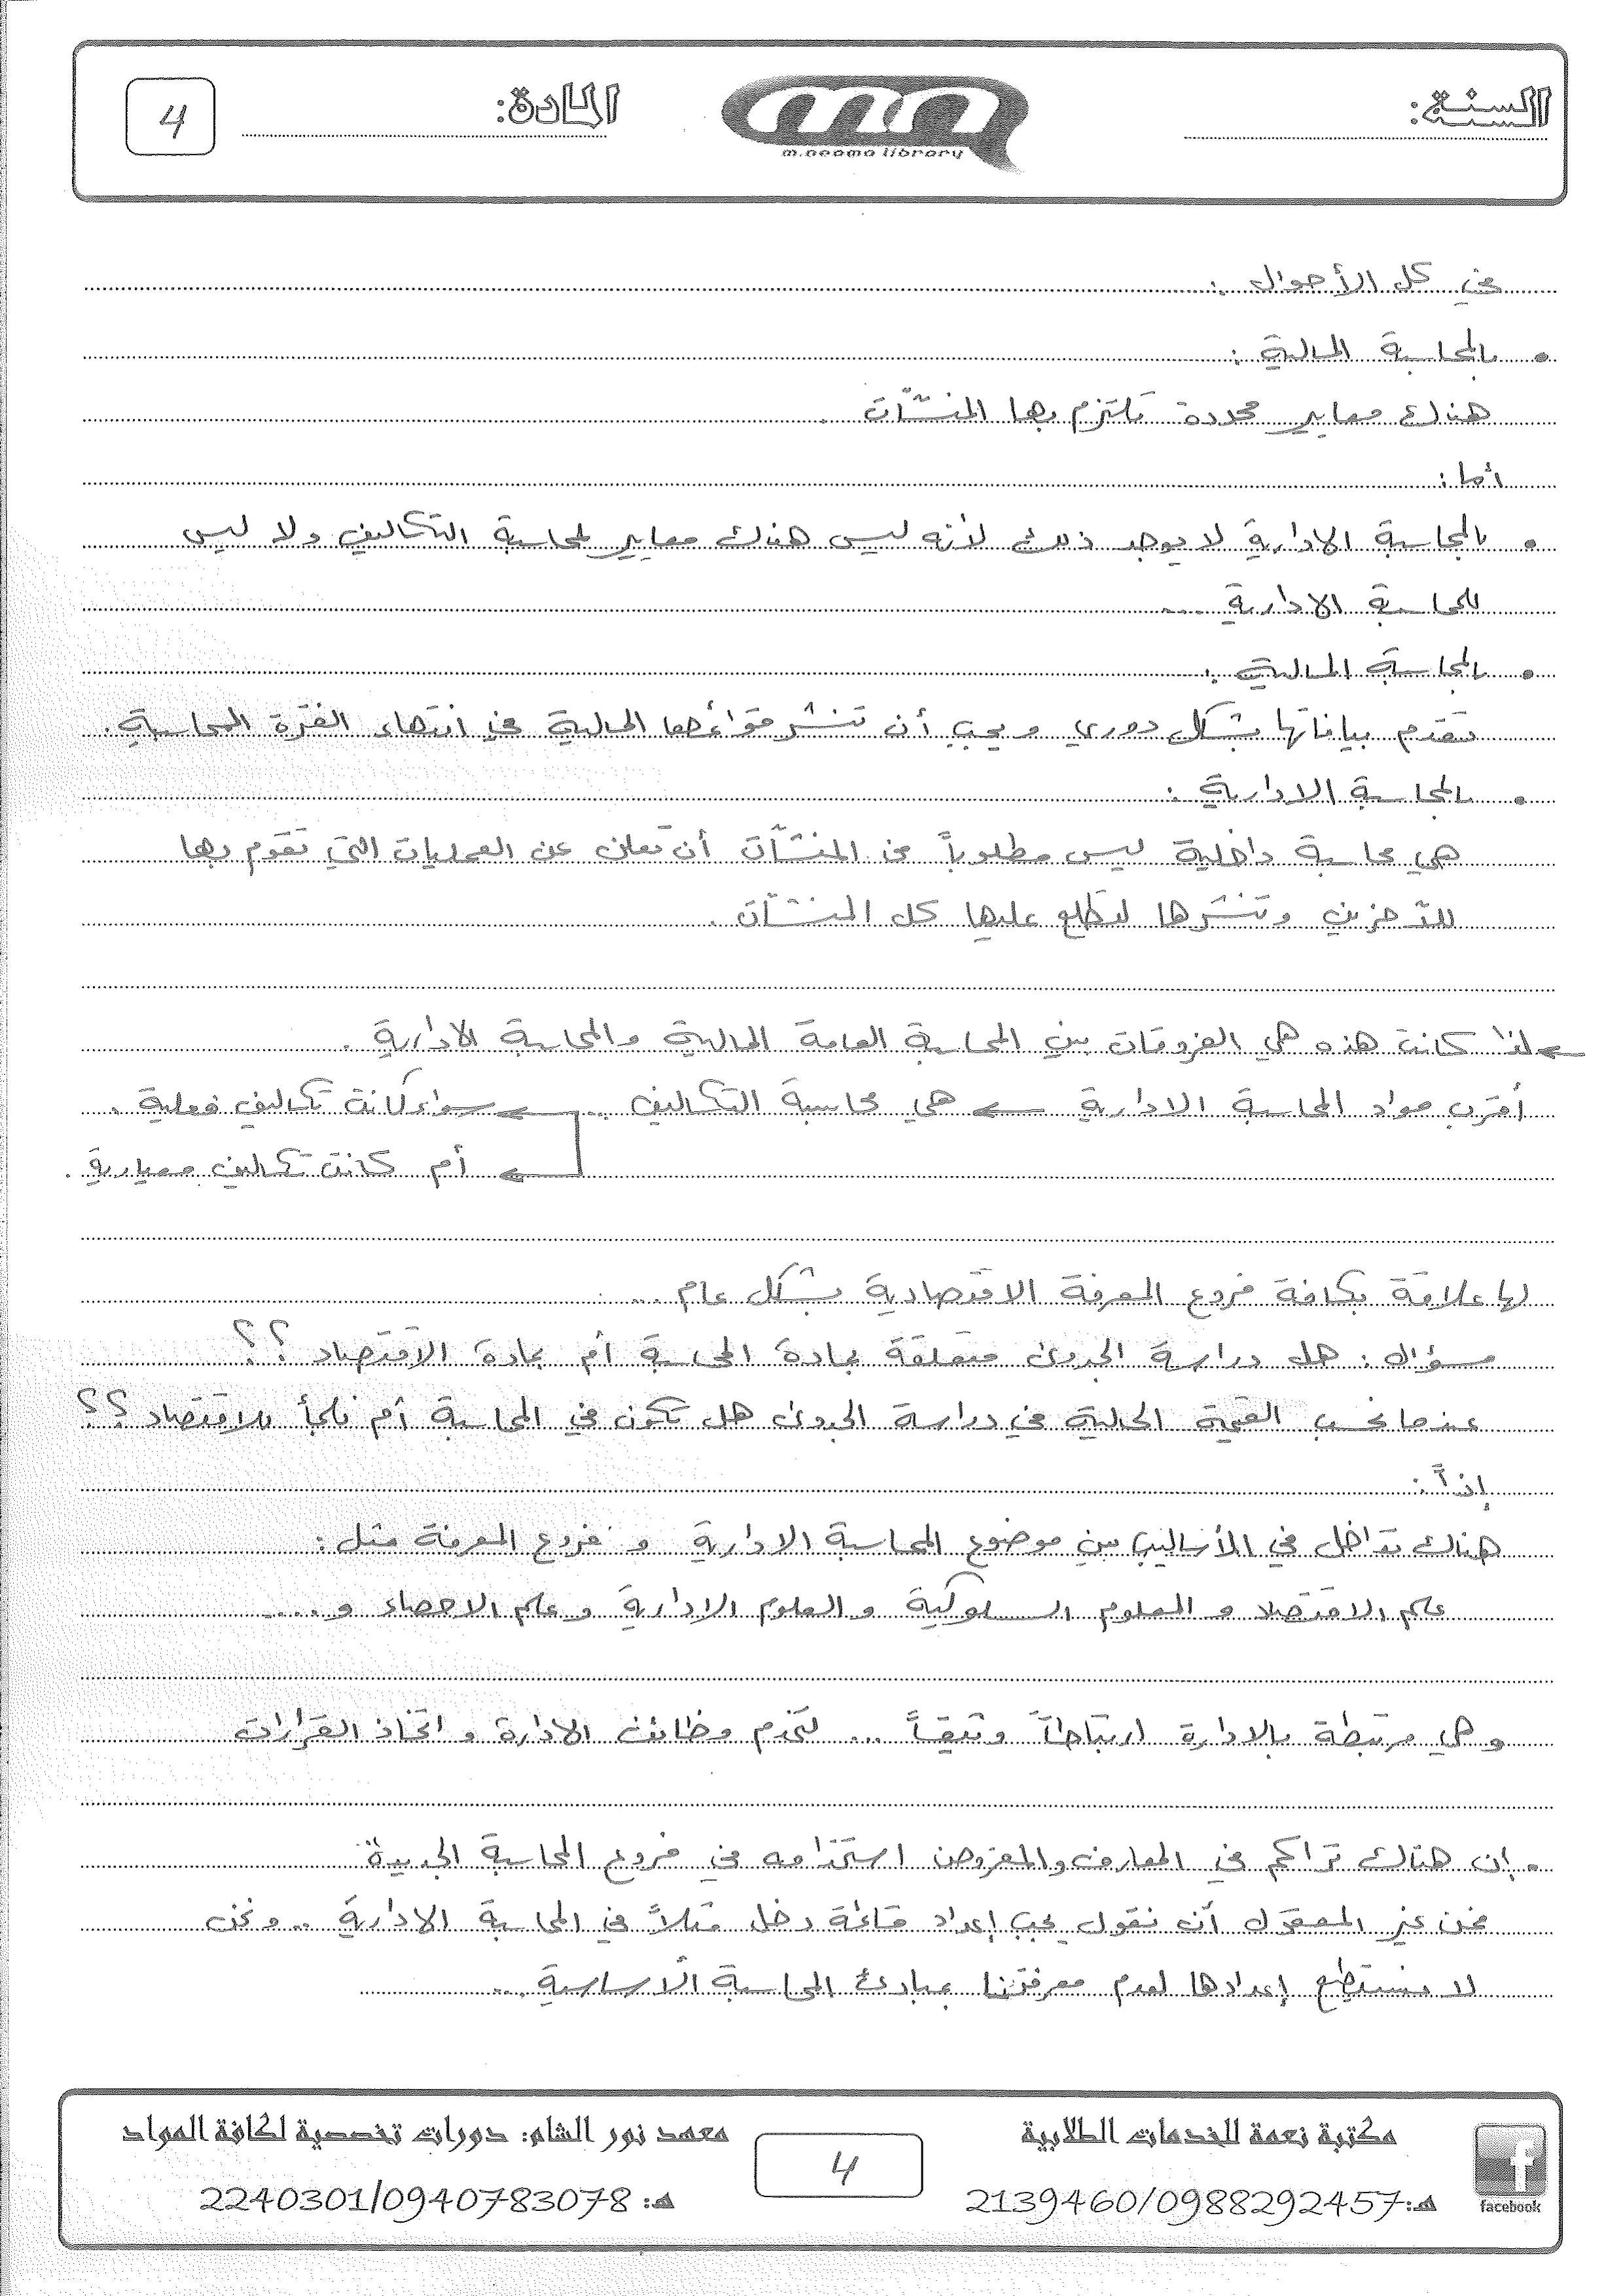 السنة:
m.neama library
المادة:
4
في كل الأحوال :
• بالمحاسبة المالية :
هناك معايير محددة تلتزم بها المنشآت .
أما :
• بالمحاسبة الادارية لا يوجد ذلك لأنه ليس هناك معايير لمحاسبة التكاليف ولا ليس
للمحاسبة الادارية ...
• بالمحاسبة المالية :
تقدم بياناتها بشكل دوري ويجب أن تنشر قوائمها المالية في انتهاء الفترة المحاسبية .
• بالمحاسبة الادارية :
هي محاسبة داخلية ليس مطلوباً من المنشآت أن تعلن عن العمليات التي تقوم بها
للآخرين وتنشرها لتطلع عليها كل المنشآت .
← لذا كانت هذه هي الفروقات بين المحاسبة العامة المالية والمحاسبة الادارية .
أقرب مواد المحاسبة الادارية ← هي محاسبة التكاليف ... ← سواء كانت تكاليف فعلية .
← أم كانت تكاليف معيارية .
لها علاقة بكافة فروع المعرفة الاقتصادية بشكل عام ...
سؤال : هل دراسة الجدوى متعلقة بمادة المحاسبة أم بمادة الاقتصاد ؟؟
عندما نحسب القيمة الحالية في دراسة الجدوى هل تكون في المحاسبة أم نلجأ للاقتصاد ؟؟
إذاً :
هناك تداخل في الأساليب بين موضوع المحاسبة الادارية و فروع المعرفة مثل :
علم الاقتصاد و العلوم السلوكية والعلوم الادارية وعلم الاحصاء و ....
وهي مرتبطة بالادارة ارتباطاً وثيقاً ... لتخدم وظائف الادارة و اتخاذ القرارات
• إن هناك تراكم في المعارف والمفروض استخدامه في فروع المحاسبة الجديدة
فمن غير المعقول أن نقول يجب إعداد قائمة دخل مثلاً في المحاسبة الادارية .. ونحن
لا نستطيع إعدادها لعدم معرفتنا بمبادئ المحاسبة الأساسية ...
مكتبة نعمة للخدمات الطلابية
هـ: 2139460/0988292457
facebook
4
معهد نور الشام: دورات تخصصية لكافة المواد
هـ: 2240301/0940783078